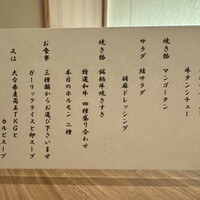 牛タンシチュー
焼き物　マンゴータン
サラダ　鮭サラダ
胡麻ドレッシング
焼き物　銘柄牛焼きすき
特選和牛　四種盛り合わせ
本日のホルモン　二種
お食事　三種類からお選び下さいませ
ガーリックライスと卵スープ
又は　大分県産蘭王TKGと
カルビスープ